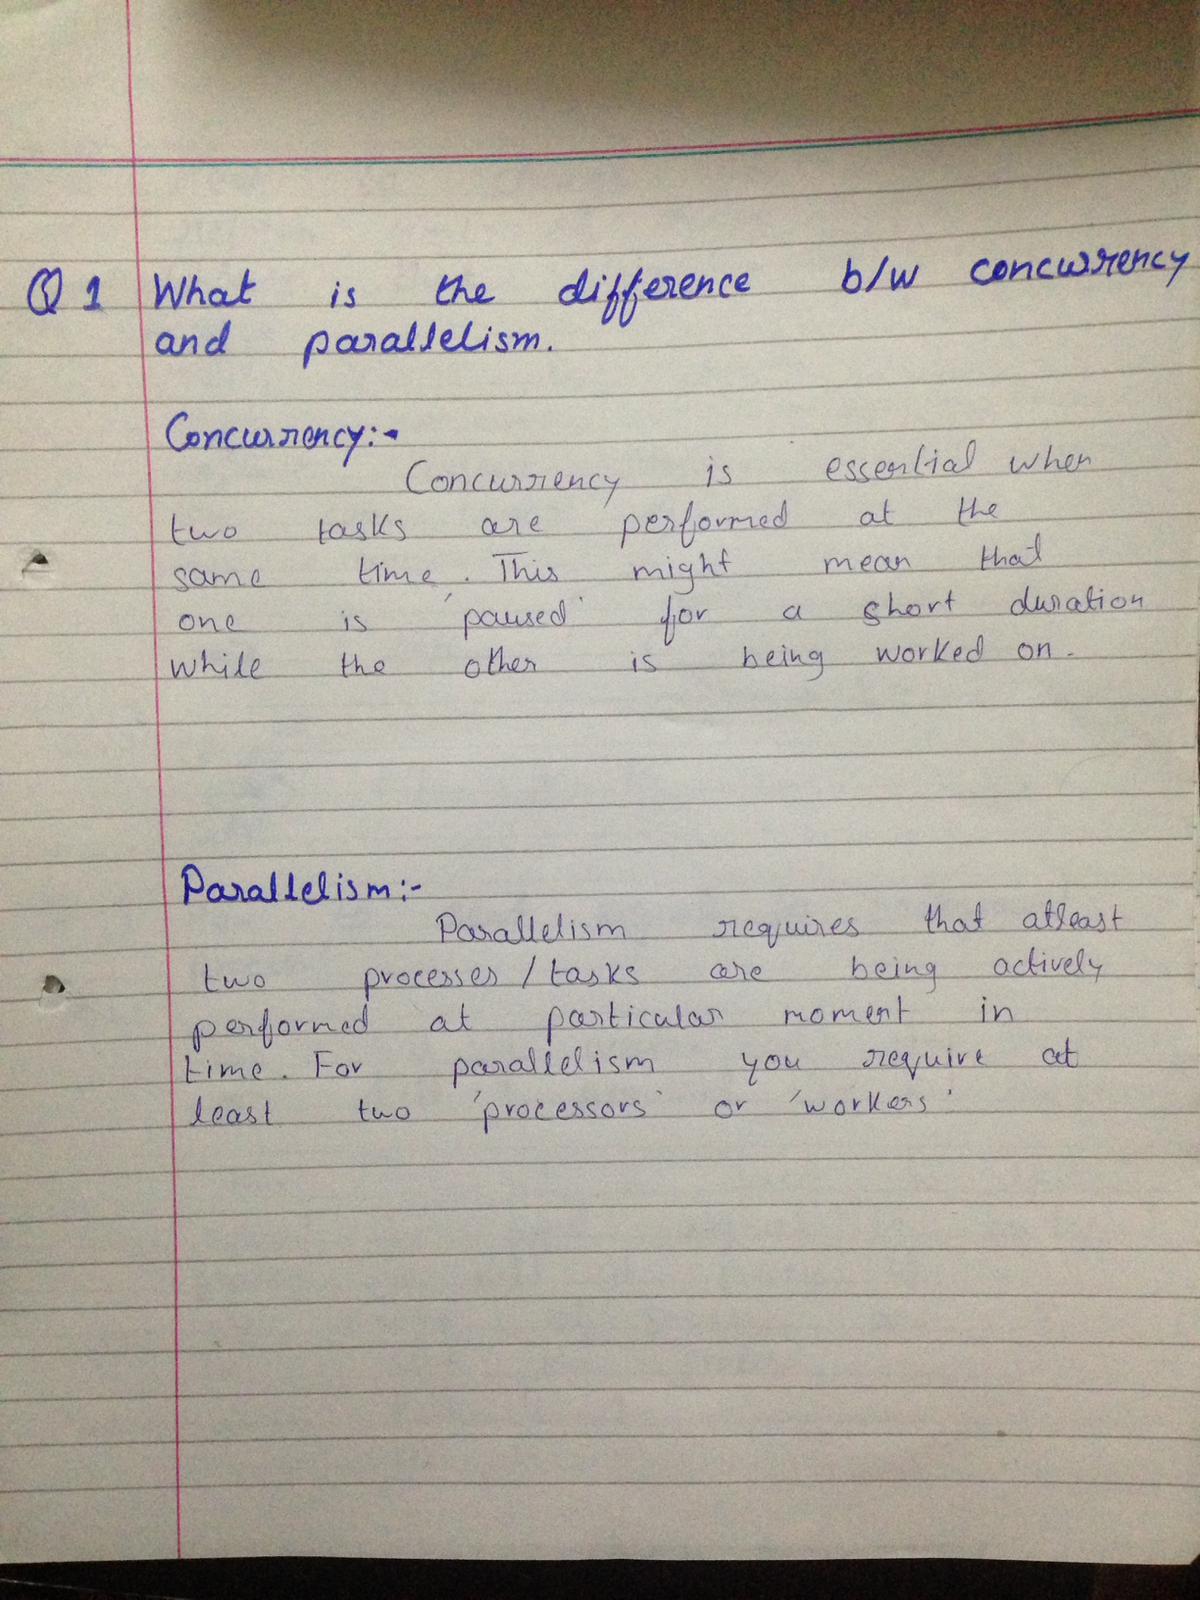 Q 1 What is the difference b/w concurrency
and parallelism.
Concurrency:-
Concurrency is essential when
two tasks are performed at the
same time. This might mean that
one is 'paused' for a short duration
while the other is being worked on.
Parallelism:-
Parallelism requires that atleast
two processes/tasks are being actively
performed at particular moment in
time. For parallelism you require at
least two 'processors' or 'workers'